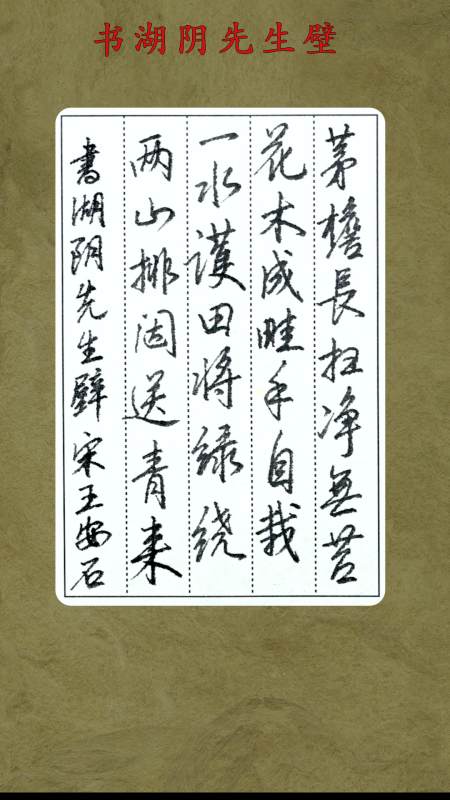 书湖阴先生壁
茅檐長扫净無苔
花木成畦手自栽
一水護田将绿绕
两山排闼送青来
書湖阴先生壁宋王安石